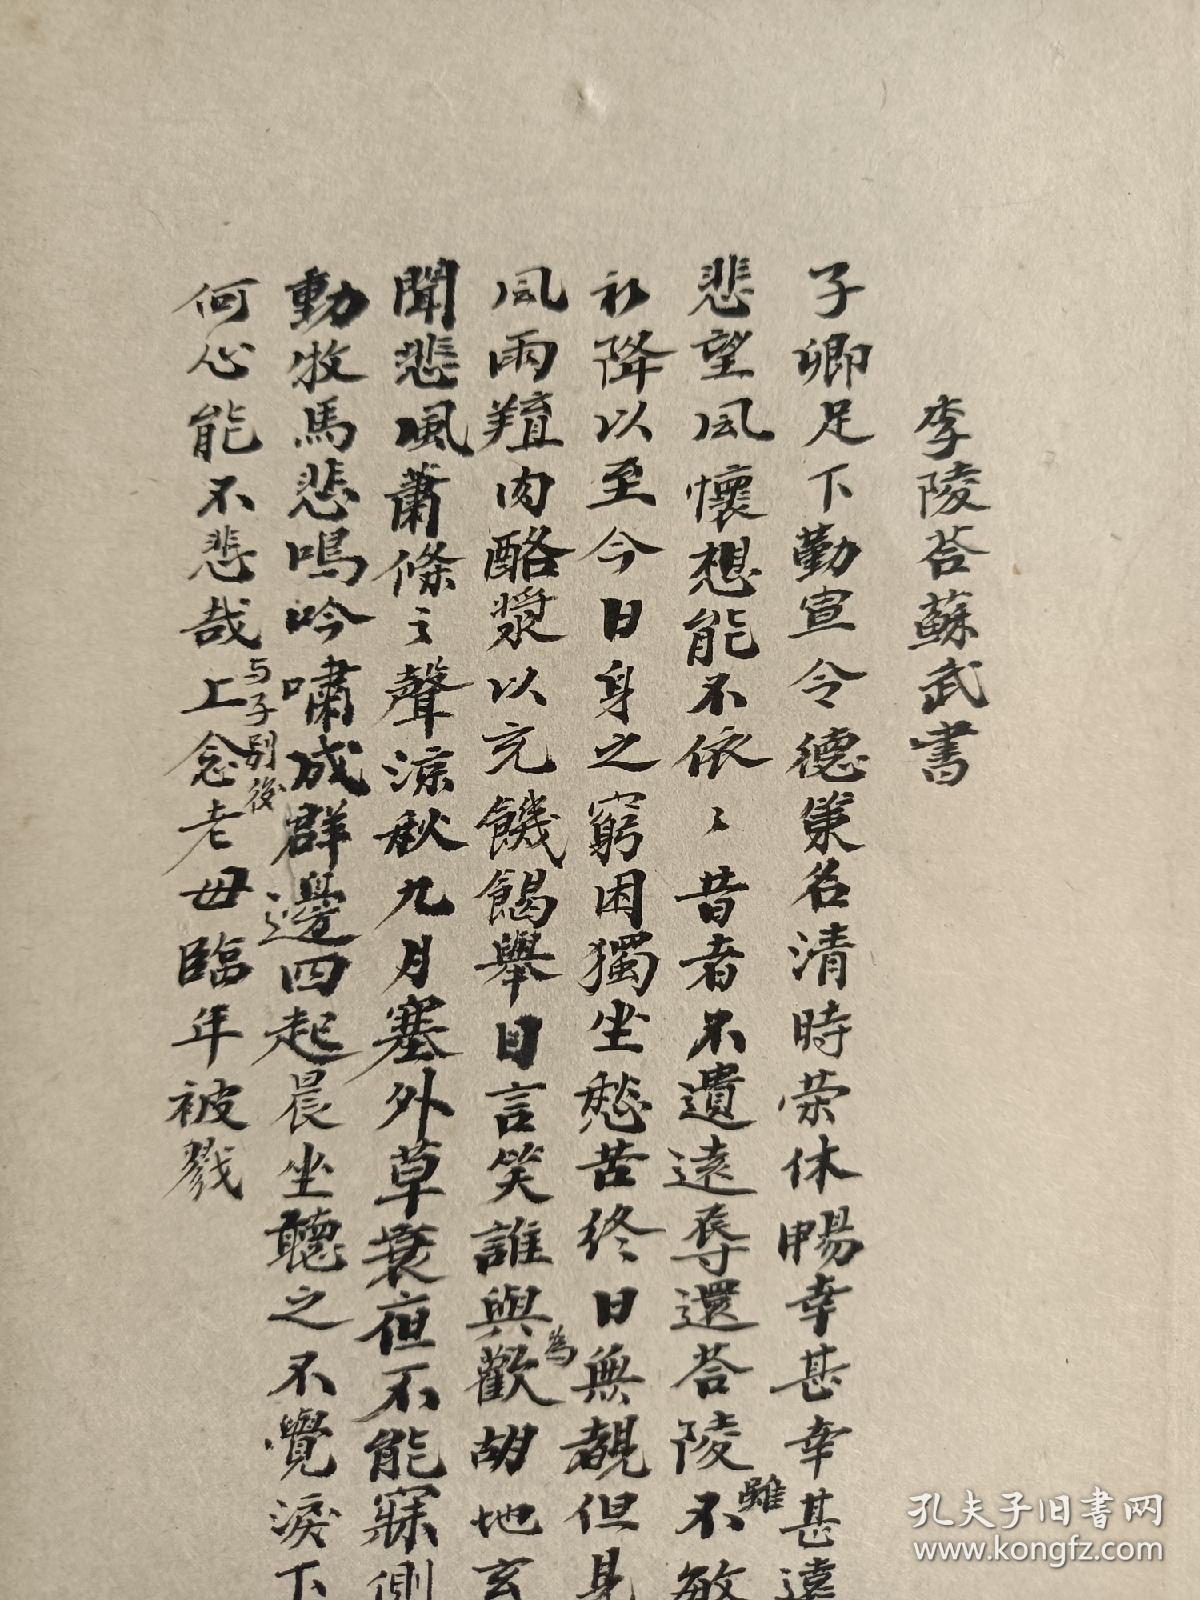 李陵荅蘇武書
子卿足下勤宣令德策名清時荣休暢幸甚幸甚遠
悲望風懷想能不依〻昔者不遺遠辱還荅陵不敏
雖
初降以至今日身之窮困獨坐愁苦終日無覩但見
風雨羶肉酪漿以充饑餲舉目言笑誰與歡胡地玄
為
聞悲風蕭條之聲涼秋九月塞外草衰夜不能寐側
動牧馬悲鳴吟嘯成群邊四起晨坐聽之不覺淚下
何心能不悲哉上念老母臨年被戮
与子别後
孔夫子旧書网
www.kongfz.com